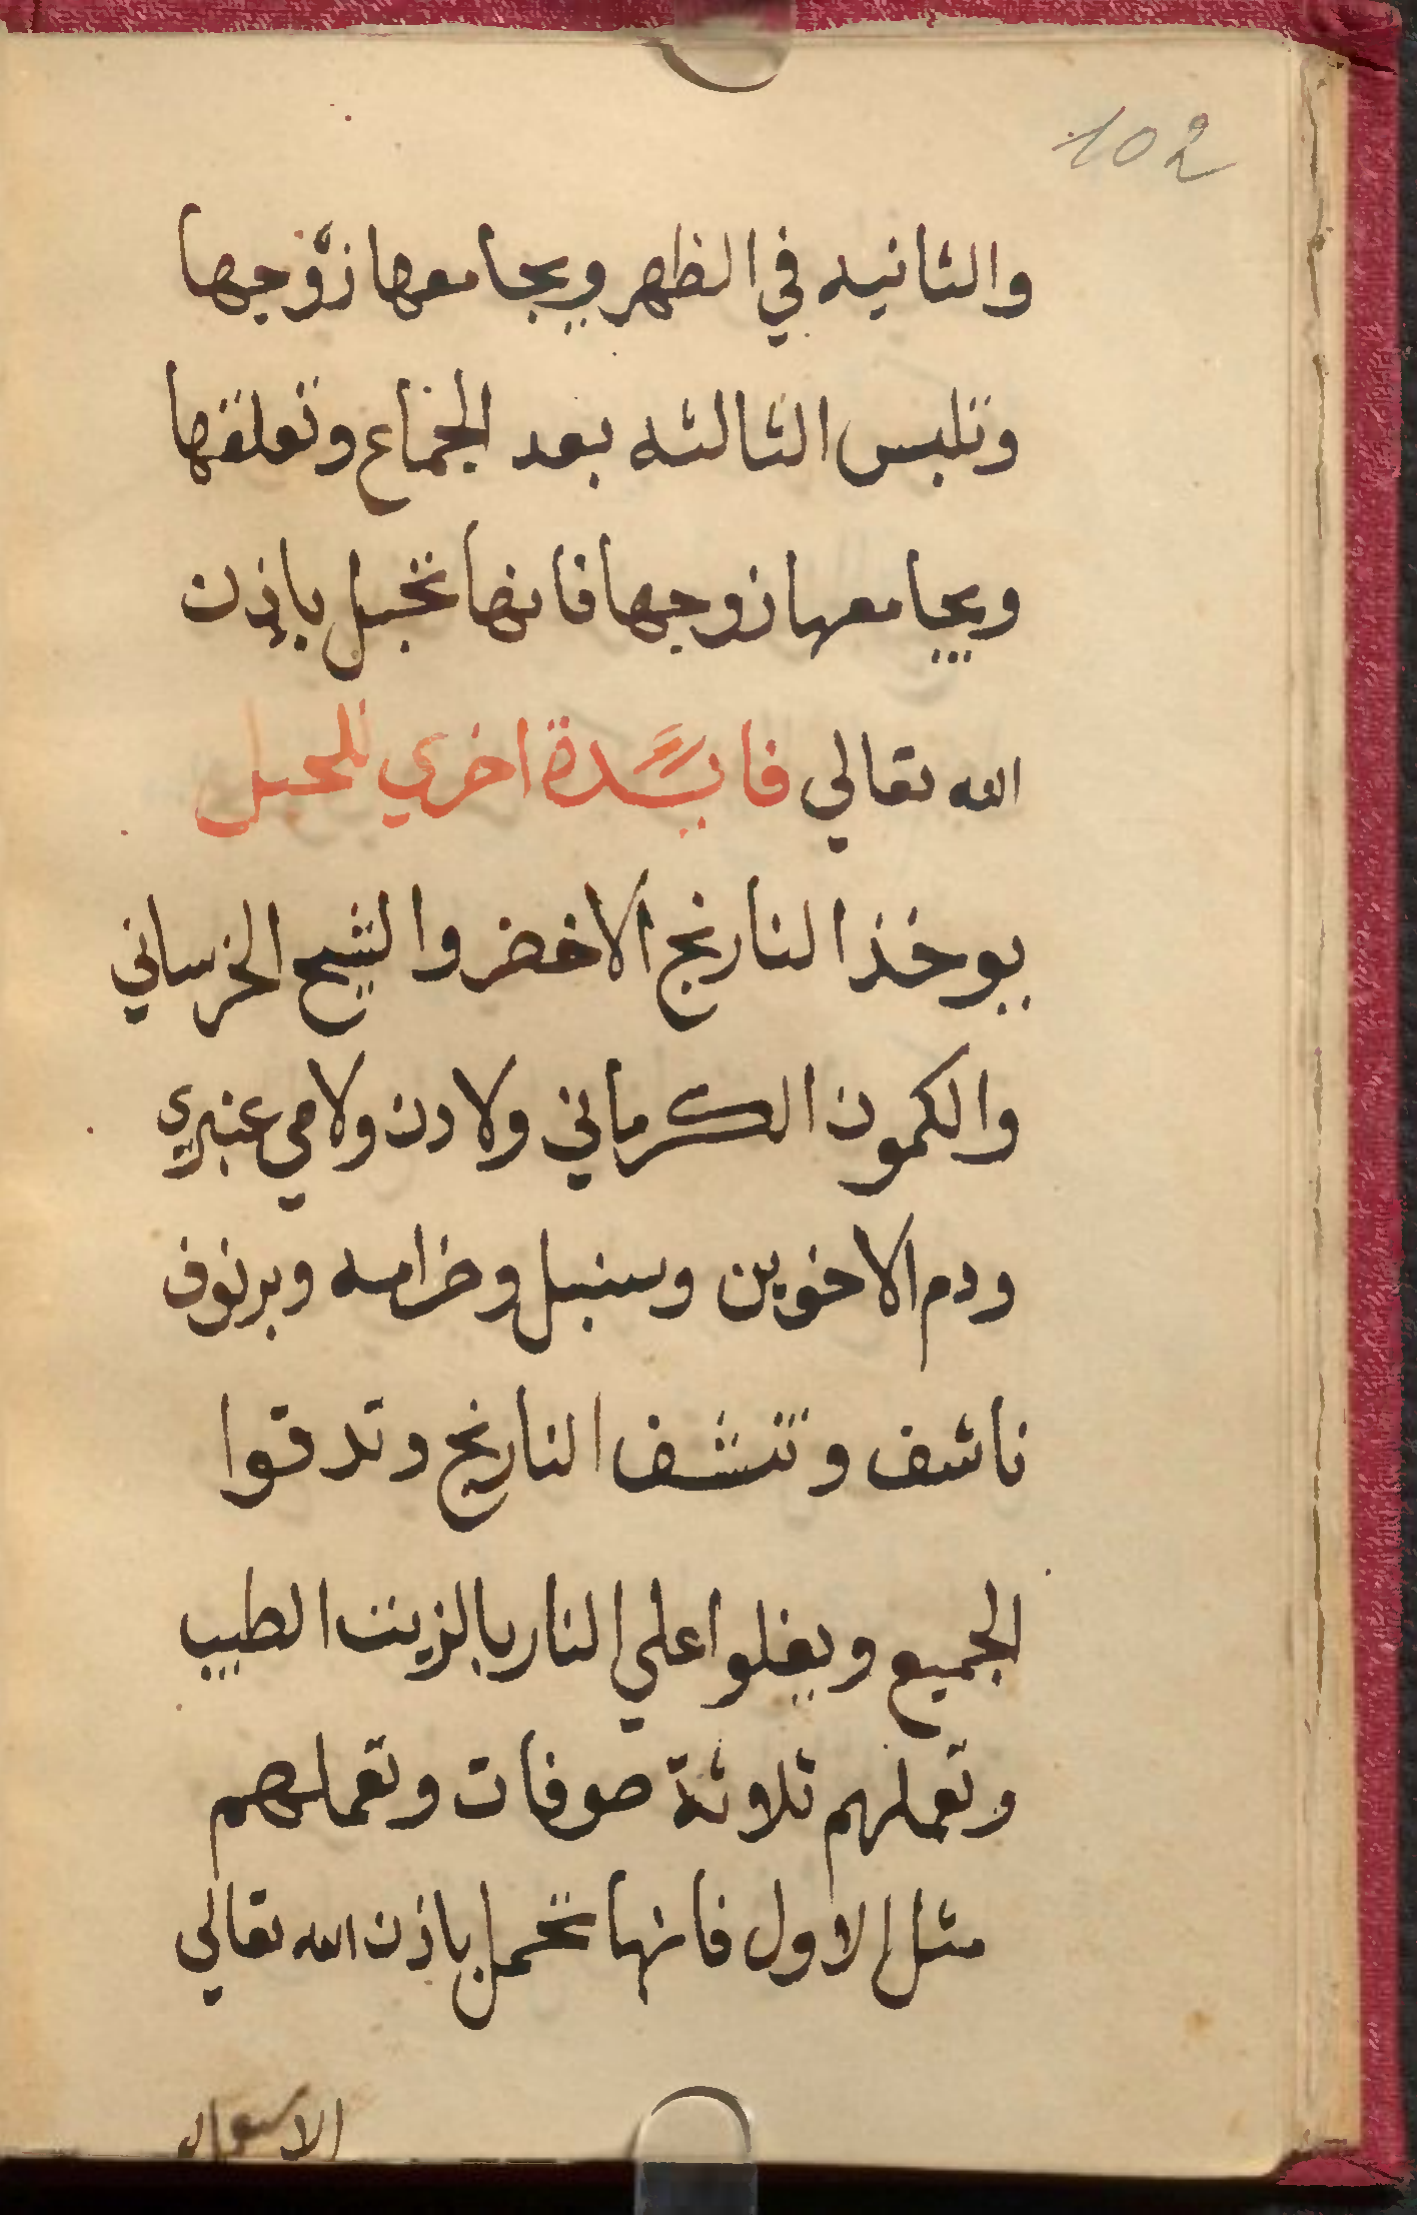 102
والثانيه في الظهر ويجامعها زوجها
وتلبس الثالثه بعد الجماع وتعلقها
ويجامعها زوجها فانها تحبل باذن
الله تعالي فايدة اخري للحبل
يوخذ النارنج الاخضر والشيح الخرساني
والكمون الكرماني ولادن ولامي عنبري
ودم الاخوين وسنبل وخزامه وبرنوف
ناشف وتنشف النارنج وتدقوا
الجميع ويغلوا علي النار بالزيت الطيب
وتعملهم ثلاوثة صوفات وتعملهم
مثل الاول فانها تحمل باذن الله تعالي